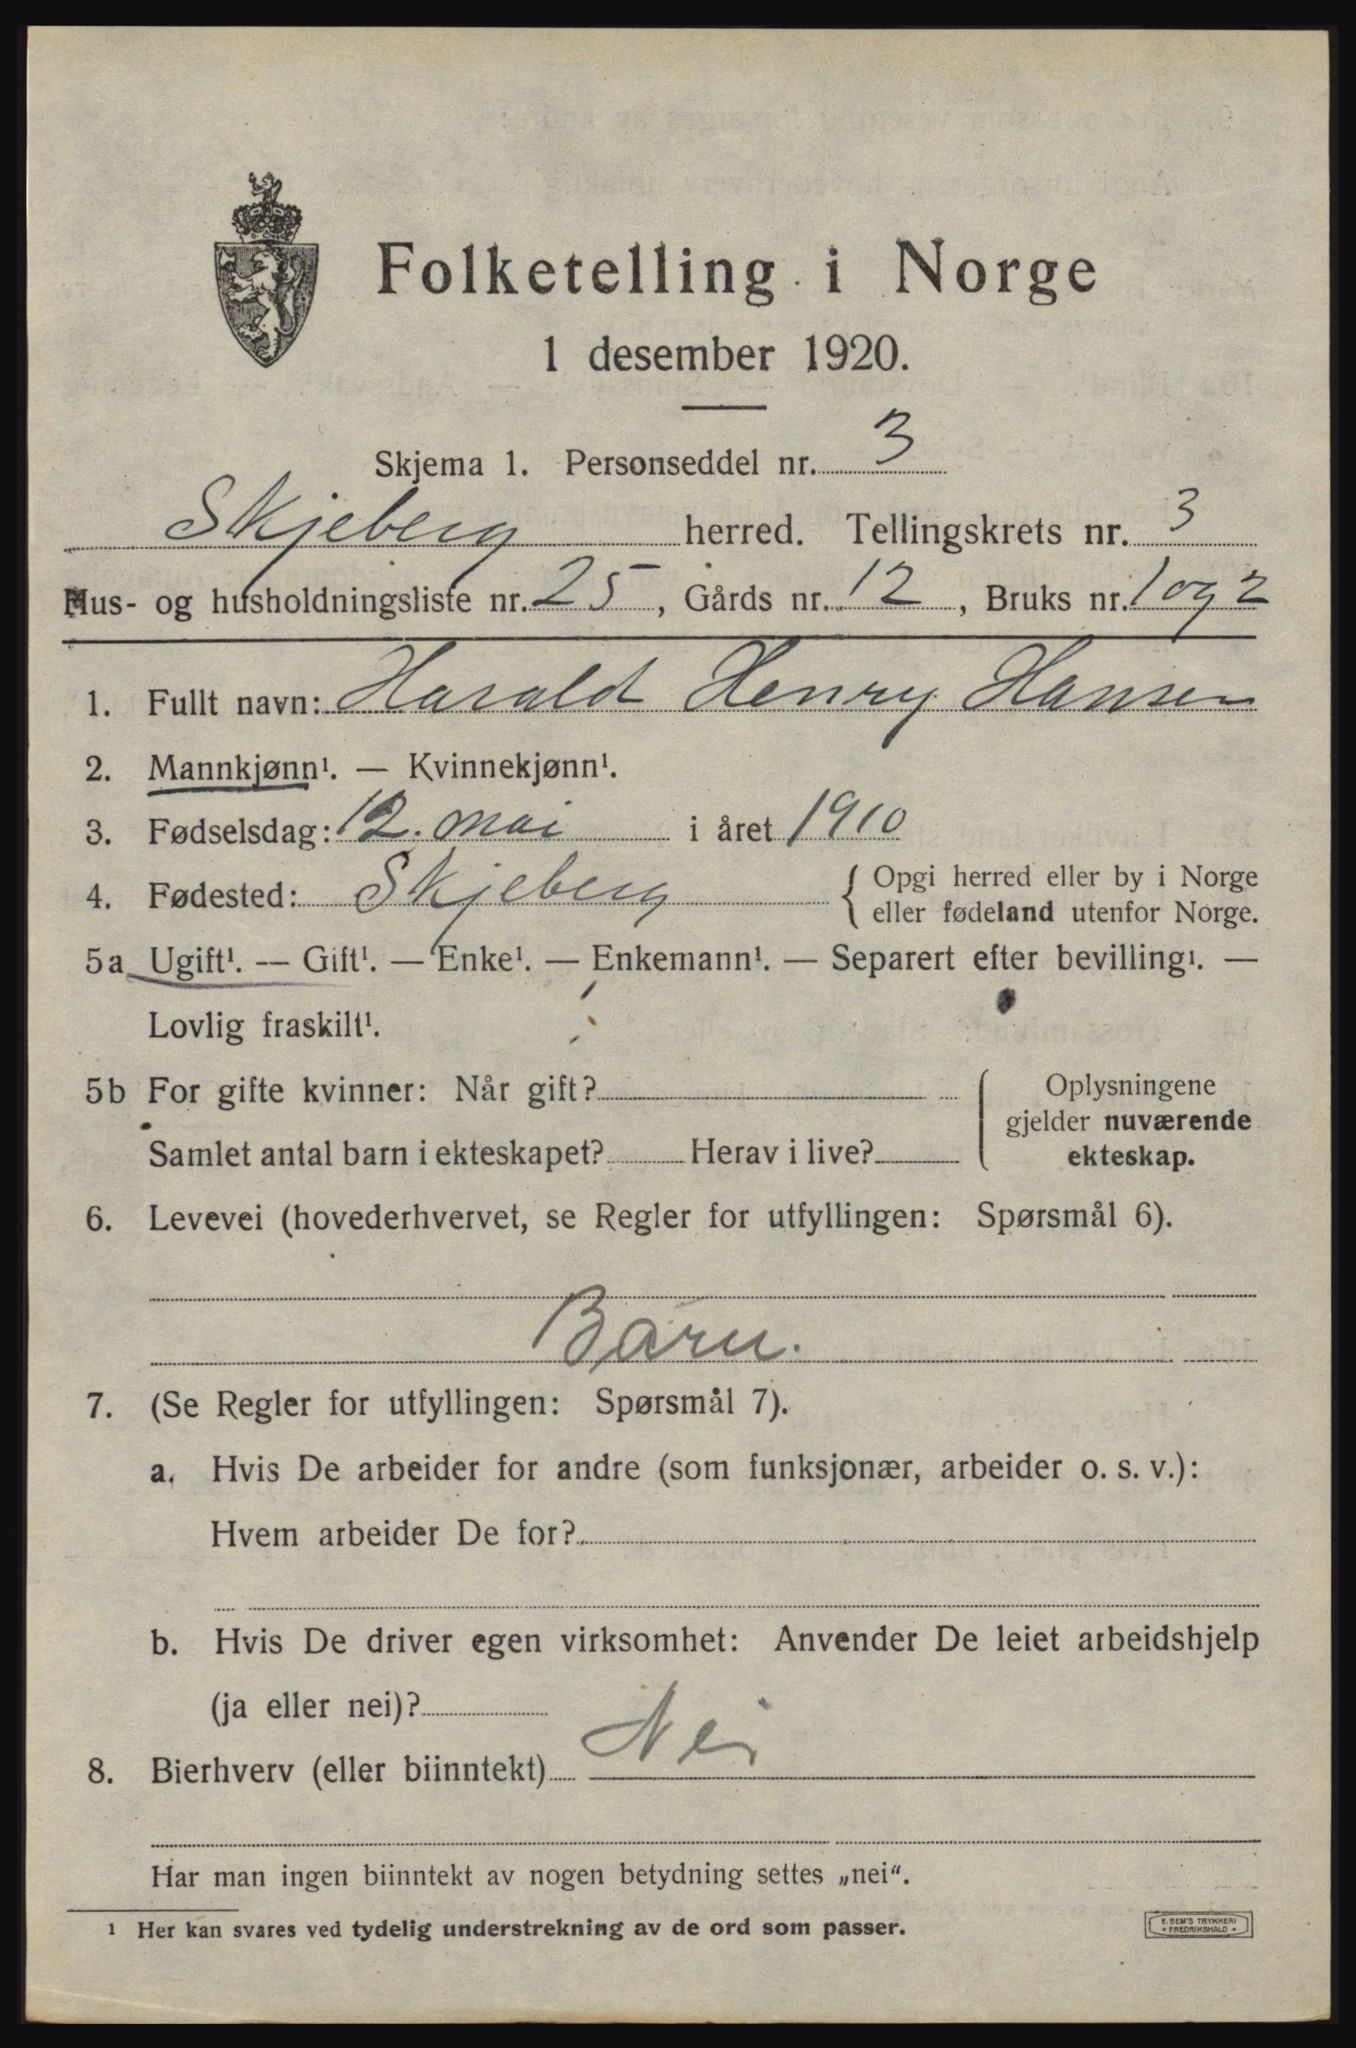 Folketelling i Norge
1 desember 1920.
Skjema 1. Personseddel nr. 3
Skjeberg herred. Tellingskrets nr. 3
Hus- og husholdningsliste nr. 25, Gårds nr. 12, Bruks nr. 1 og 2
1. Fullt navn: Harald Henry Hansen
2. Mannkjønn¹. — Kvinnekjønn¹.
3. Fødselsdag: 12. mai i året 1910
4. Fødested: Skjeberg { Opgi herred eller by i Norge
eller fødeland utenfor Norge.
5a Ugift¹. — Gift¹. — Enke¹. — Enkemann¹. — Separert efter bevilling¹. —
Lovlig fraskilt¹.
5b For gifte kvinner: Når gift?
Samlet antal barn i ekteskapet? Herav i live?
{ Oplysningene
gjelder nuværende
ekteskap.
6. Levevei (hovederhvervet, se Regler for utfyllingen: Spørsmål 6).
Barn.
7. (Se Regler for utfyllingen: Spørsmål 7).
a. Hvis De arbeider for andre (som funksjonær, arbeider o. s. v.):
Hvem arbeider De for?
b. Hvis De driver egen virksomhet: Anvender De leiet arbeidshjelp
(ja eller nei)?
8. Bierhverv (eller biinntekt) Nei
Har man ingen biinntekt av nogen betydning settes „nei“.
¹ Her kan svares ved tydelig understrekning av de ord som passer.
E. SEM'S TRYKKERI
• FREDRIKSHALD •